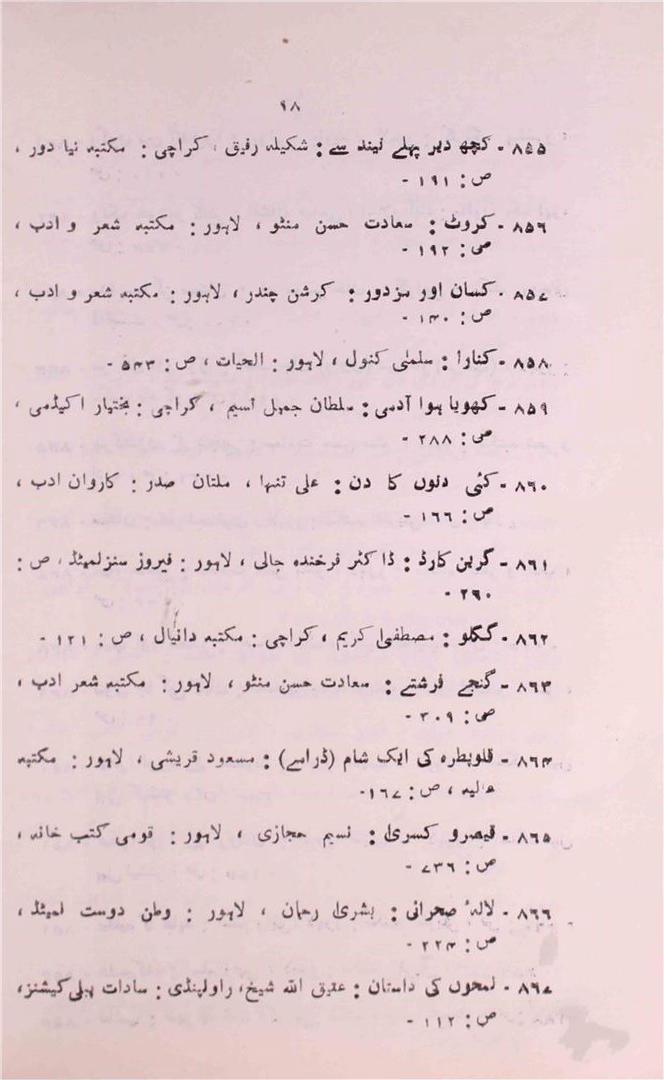 ۹۸
۸۵۵ - کچھ دیر پہلے نیند سے : شکیلہ رفیق ، کراچی : مکتبہ نیا دور ،
ص : ۱۹۱ -
۸۵۶ - کروٹ : سعادت حسن منٹو ، لاہور : مکتبہ شعر و ادب ،
ص : ۱۹۲ -
۸۵۷ - کسان اور مزدور : کرشن چندر ، لاہور : مکتبہ شعر و ادب ،
ص : ۱۴۰ -
۸۵۸ - کنارا : سلمیٰ کنول ، لاہور : الحیات ، ص : ۵۴۳ -
۸۵۹ - کھویا ہوا آدمی : سلطان جمیل نسیم ، کراچی : بختیار اکیڈمی ،
ص : ۲۸۸ -
۸۶۰ - کئی دنوں کا دن : علی تنہا ، ملتان صدر : کاروان ادب ،
ص : ۱۶۶ -
۸۶۱ - گرین کارڈ : ڈاکٹر فرخندہ جالی ، لاہور : فیروز سنز لمیٹڈ ، ص :
۲۹۰ -
۸۶۲ - گگلو : مصطفیٰ کریم ، کراچی : مکتبہ دانیال ، ص : ۱۲۱ -
۸۶۳ - گنجے فرشتے : سعادت حسن منٹو ، لاہور : مکتبہ شعر ادب ،
ص : ۳۰۹ -
۸۶۴ - قلوپطرہ کی ایک شام (ڈرامے) : مسعود قریشی ، لاہور : مکتبہ
عالیہ ، ص : ۱۶۷ -
۸۶۵ - قیصر و کسریٰ : نسیم حجازی ، لاہور : قومی کتب خانہ ،
ص : ۷۳۶ -
۸۶۶ - لالۂ صحرائی : بشریٰ رحمان ، لاہور : وطن دوست لمیٹڈ ،
ص : ۲۲۴ -
۸۶۷ - لمحوں کی داستان : عتیق اللہ شیخ ، راولپنڈی : سادات پبلی کیشنز ،
ص : ۱۱۲ -